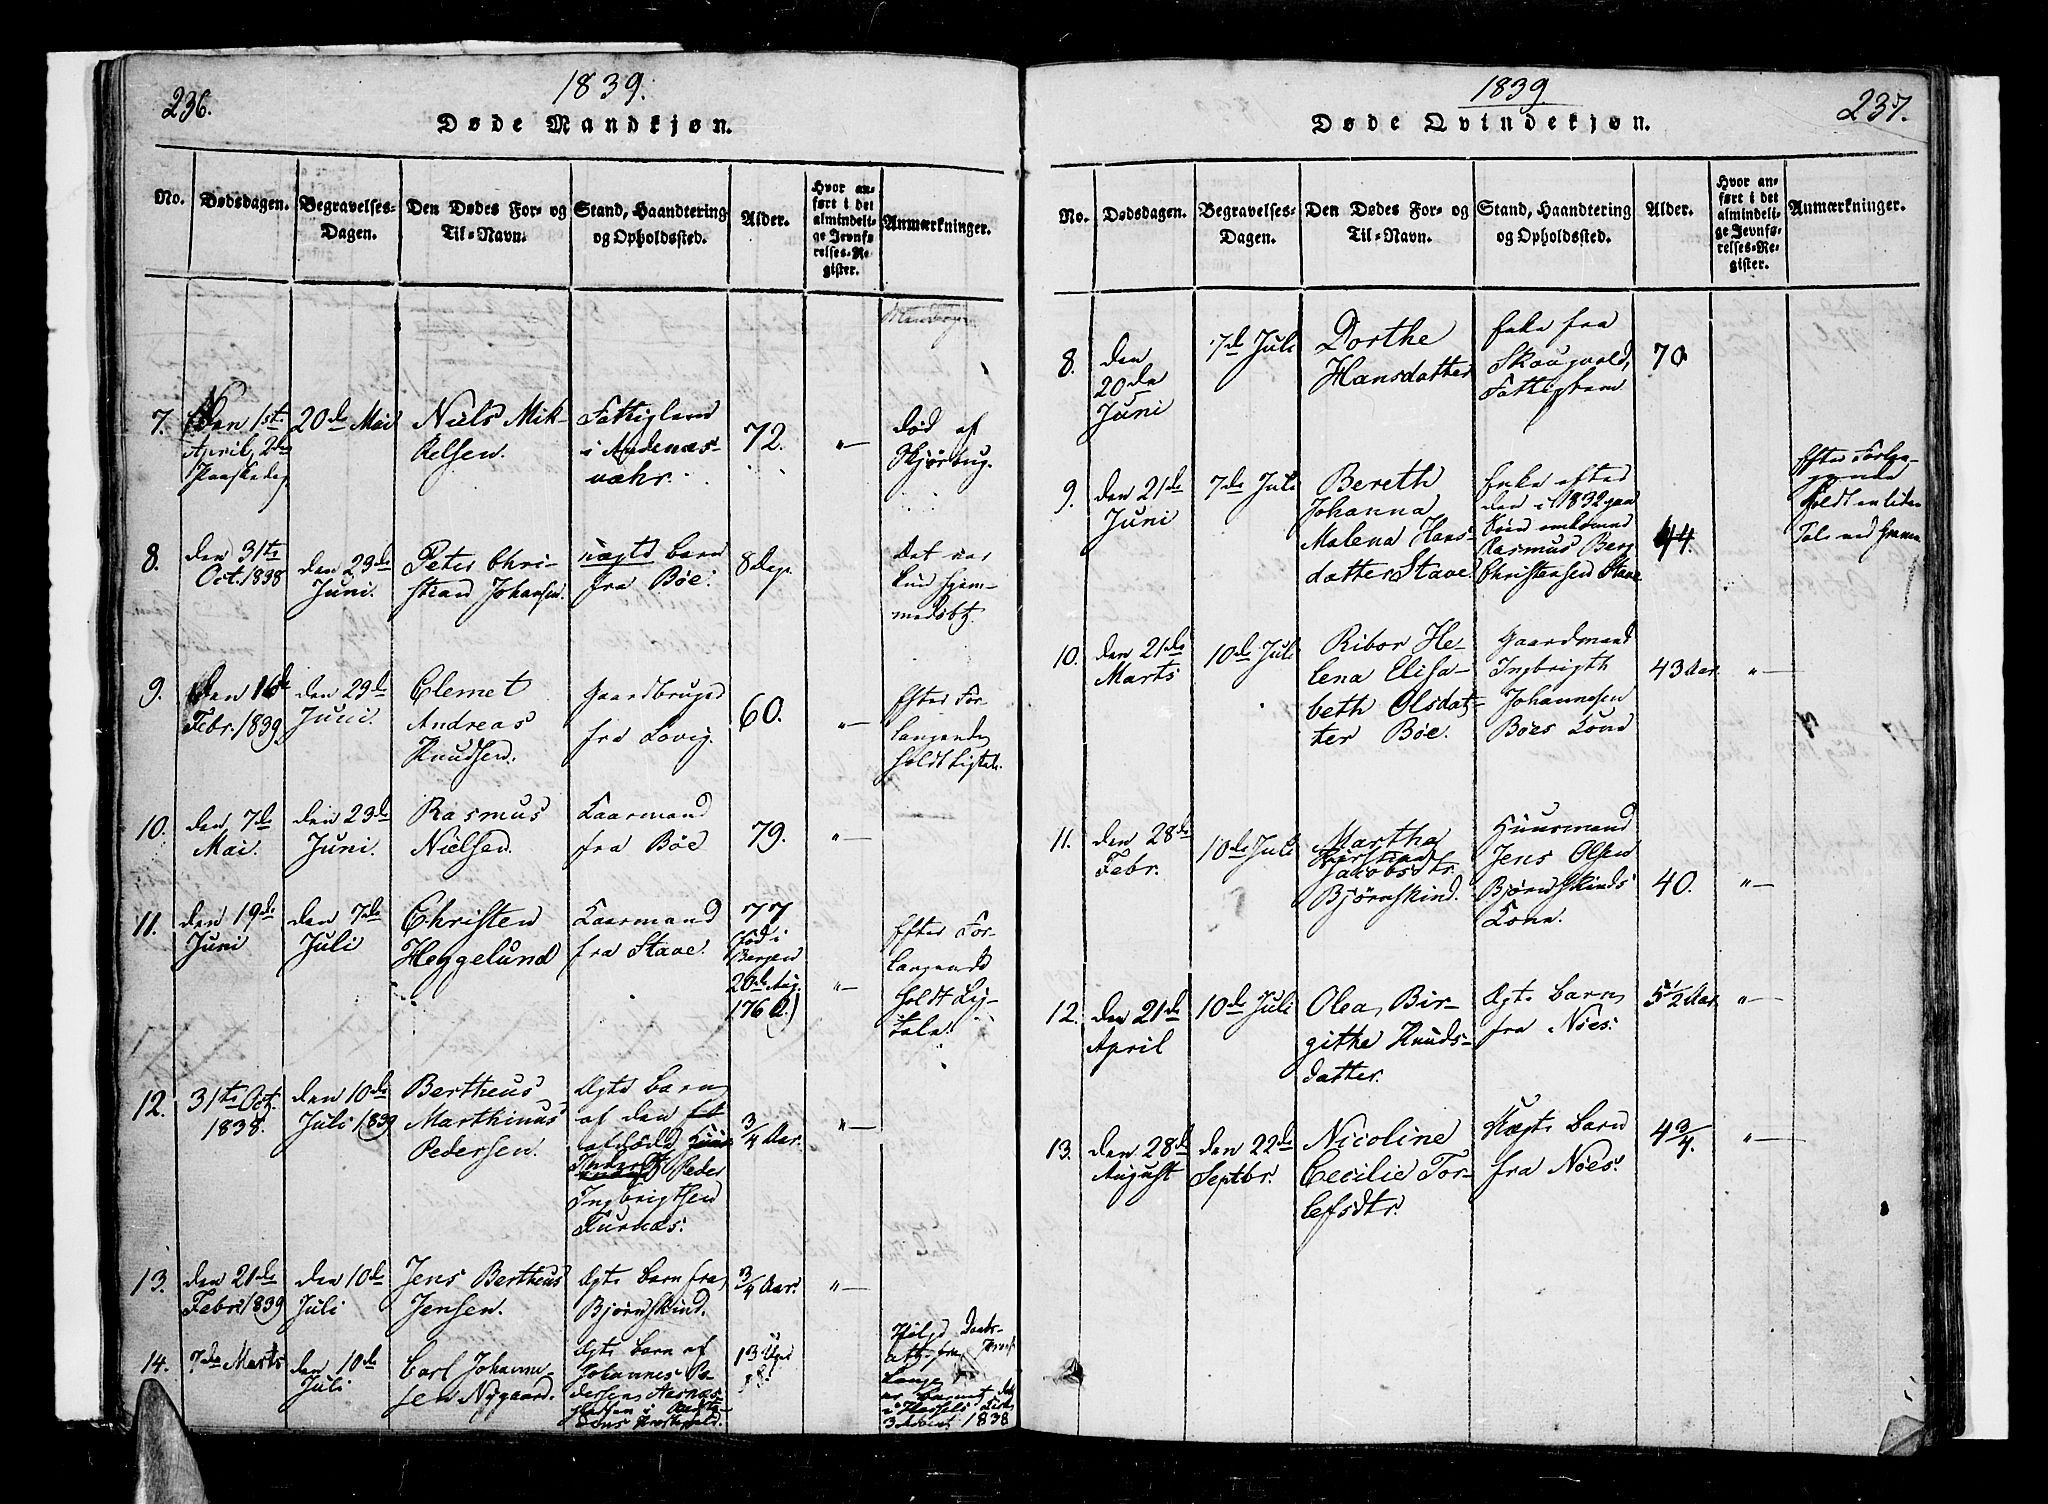 236.
1839.
Døde Mandkjøn.
No.
Dødsdagen.
Begravelses-
Dagen.
Den Dødes For- og
Til-Navn.
Stand, Haandtering
og Opholdssted.
Alder.
Hvor an-
ført i det
almindeli-
ge Jevnfø-
relses-Re-
gister.
Anmærkninger.
7.
Den 1ste
April, 2den
Paaskedag
20de Mai
Niels Mik-
kelsen.
Fattiglem
i Andenæs-
væhr.
72.
"—
død af
Skjørbug.
8.
den 31te
Oct. 1838
den 23de
Juni.
Peter Chri-
stian Johansen.
uægte barn
fra Bøe.
8 Dage
Det var
kun hjem-
medøbt.
9.
Den 16de
Febr. 1839
den 23de
Juni.
Clemet
Andreas
Knudsen.
Gaardbruger
fra Lovig.
60.
"—
Efter For-
langende
holdt Ligtale.
10.
den 7de
Mai.
den 23de
Juni.
Rasmus
Nielsen.
Kaarmand
fra Bøe
79.
"—
11.
den 19de
Juni
den 7de
Juli
Christen
Heggelund
Kaarmand
fra Stave.
77
(fød i
Bergen
20de Aug.
1762)
"—
Efter For-
langende
holdt Lig-
tale.
12.
31te Oct.
1838.
den 10de
Juli 1839
Bertheus
Marthinus
Pedersen.
Ægte barn
af den
afdøde
Peder
Ingbrigtsen
Furnæs.
3/4 Aar.
"—
13.
den 21de
Febr. 1839
den 10de
Juli
Jens Bertheus
Jensen.
Ægte barn fra
Bjørnskind.
3/4 Aar.
"—
14.
7de Marts
den 10de
Juli
Carl Johanne-
sen Nygaard.
Ægte barn af
Johannes Pe-
dersen Aarnæs
13 Uger
Ifølge Daabs-
attest fra
Lange
er Barnet døbt
i Hassels Kirke
3 Advent 1838
1839
237.
Døde Qvindekjøn.
No.
Dødsdagen.
Begravelses-
Dagen.
Den Dødes For- og
Til-Navn.
Stand, Haandtering
og Opholdssted.
Alder.
Hvor an-
ført i det
almindeli-
ge Jevnfø-
relses-Re-
gister.
Anmærkninger.
8.
den
20de
Juni
7de Juli
Dorthe
Hansdatter
Enke fra
Skougvold,
Fattiglem
70
9.
den 21de
Juni
7de Juli
Bereth
Johanna
Malena Hans-
datter Stave.
Enke efter
den i 1832 paa
Søen omkomne
Rasmus Berg
Christensen Stave
44
Efter Forlan-
gende
holdt en liden
Tale ved Graven
10.
den 21de
Marts
10de Juli
Ribor He-
lena Elisa-
beth Olsdat-
ter Bøe.
Gaardmand
Ingbrigth
Johannesen
Bøes Kone
43 Aar.
"—
11.
den 28de
Febr.
10de Juli
Martha
Kirstina
Jacobsdtr.
Bjørnskind.
Huusmand
Jens Olsen
Bjørnskinds
Kone.
40.
"—
12.
den 21de
April
10de Juli
Olea Bir-
githe Knuds-
datter.
Ægte barn
fra Nöes.
5 1/2 Aar.
"—
13.
den 28de
August
den 22de
Septbr.
Nicoline
Cecilie Tor-
lefsdtr.
Uægte Barn
fra Nöes.
4 3/4.
"—